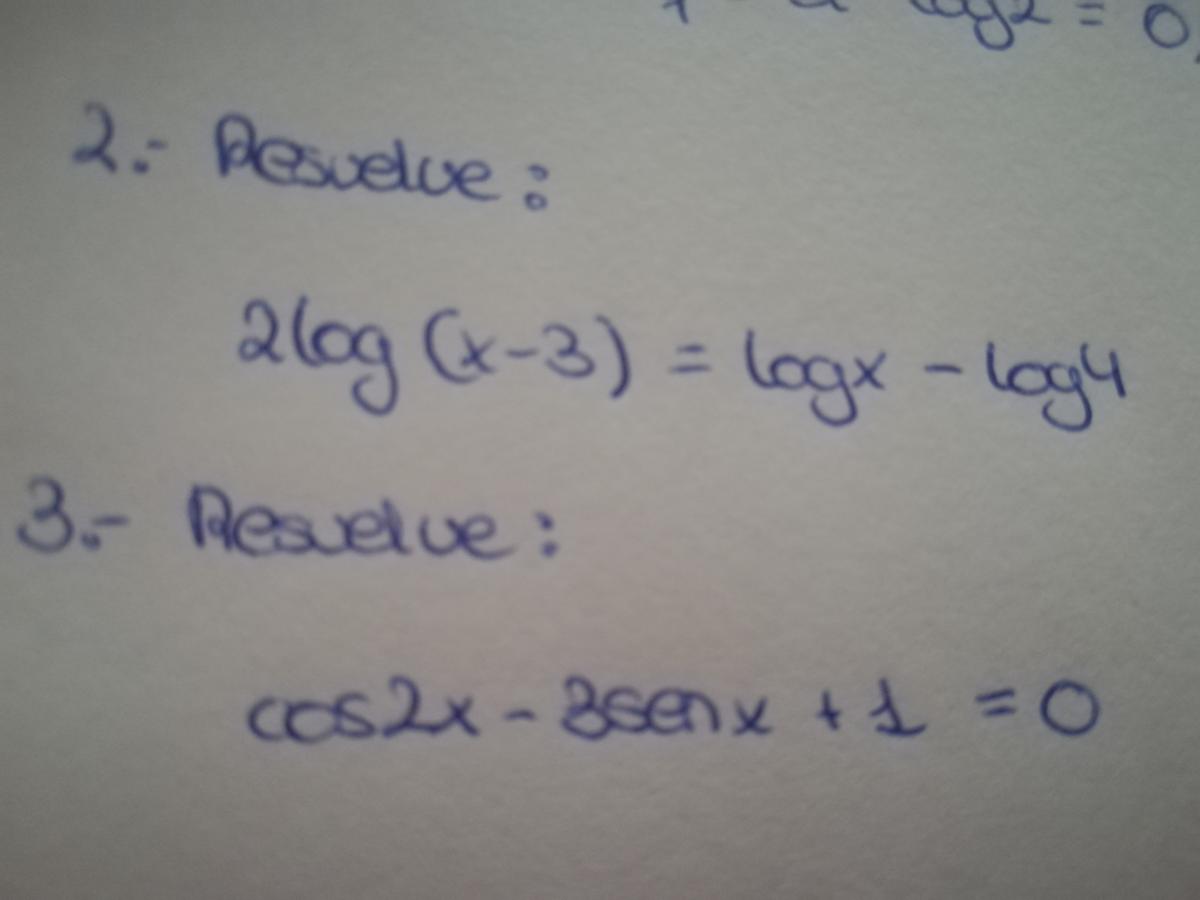 log2 = 0,
2.- Resuelve:
2log (x-3) = logx - log4
3.- Resuelve:
cos2x - 3senx + 1 = 0